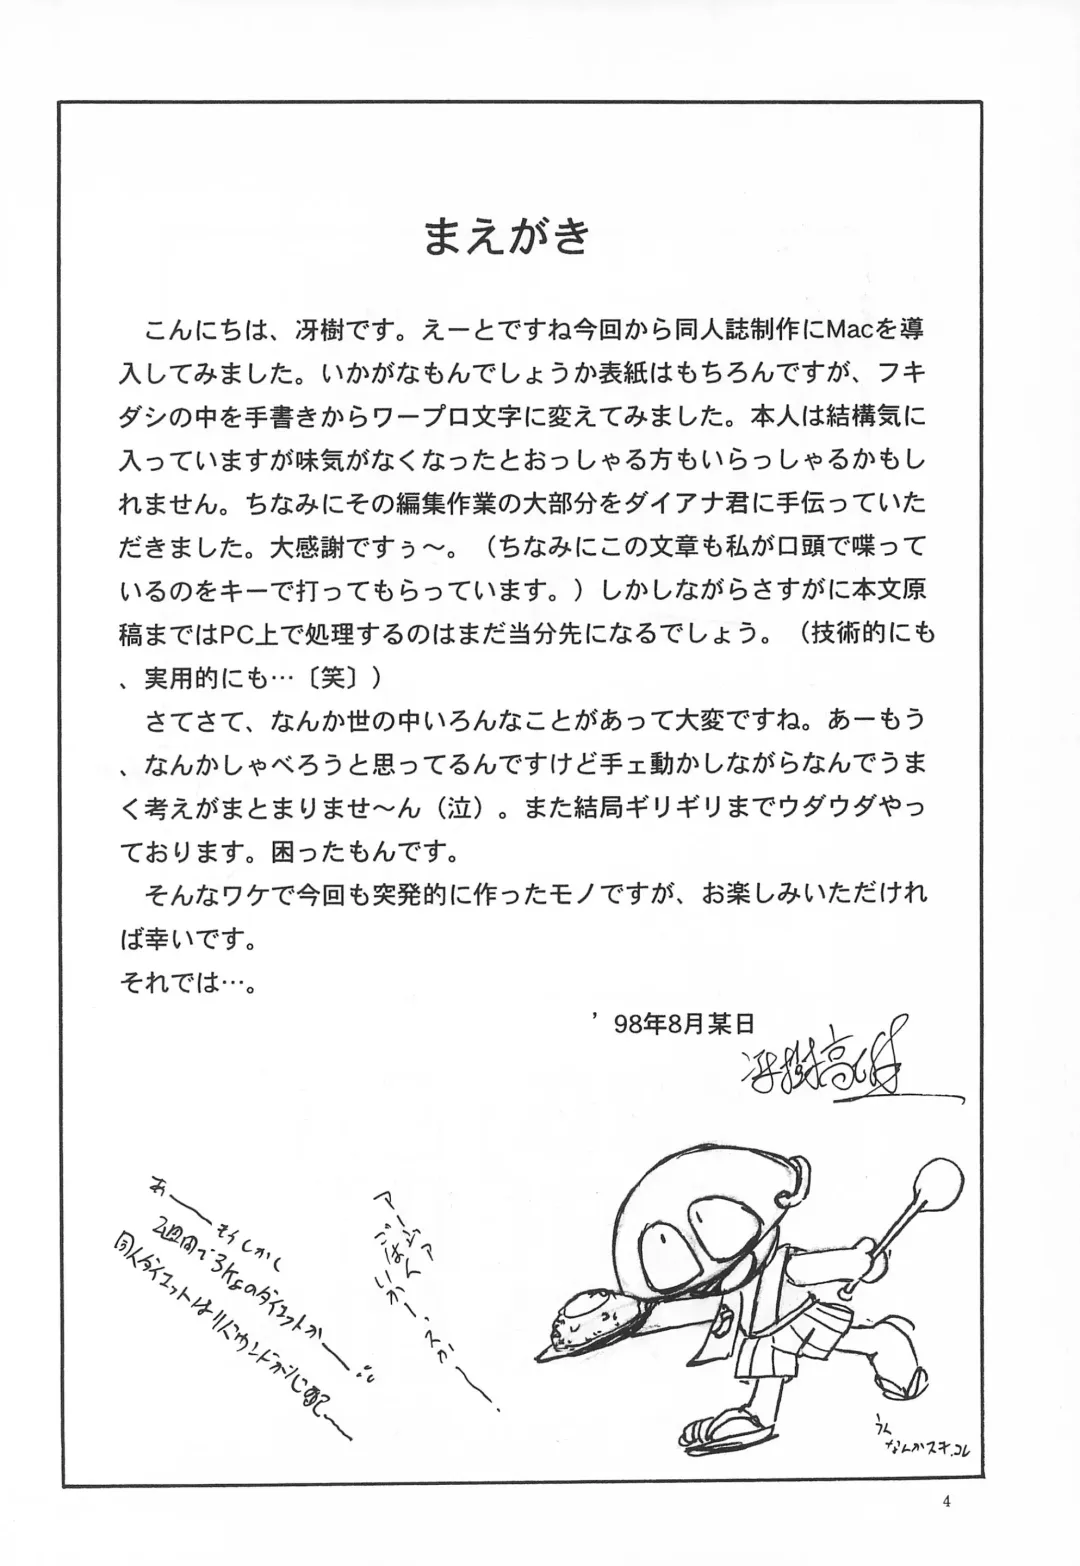 まえがき
　こんにちは、冴樹です。えーとですね今回から同人誌制作にMacを導
入してみました。いかがなもんでしょうか表紙はもちろんですが、フキ
ダシの中を手書きからワープロ文字に変えてみました。本人は結構気に
入っていますが味気がなくなったとおっしゃる方もいらっしゃるかもし
れません。ちなみにその編集作業の大部分をダイアナ君に手伝っていた
だきました。大感謝ですぅ〜。（ちなみにこの文章も私が口頭で喋って
いるのをキーで打ってもらっています。）しかしながらさすがに本文原
稿まではPC上で処理するのはまだ当分先になるでしょう。（技術的にも
、実用的にも…〔笑〕）
　さてさて、なんか世の中いろんなことがあって大変ですね。あーもう
、なんかしゃべろうと思ってるんですけど手ェ動かしながらなんでうま
く考えがまとまりませ〜ん（泣）。また結局ギリギリまでウダウダやっ
ております。困ったもんです。
　そんなワケで今回も突発的に作ったモノですが、お楽しみいただけれ
ば幸いです。
それでは…。
’98年8月某日
冴樹高雄
アージァ
ごはんいかー、スかー
あーーもしかし
2週間で3kgのダイエットかーー
同人ダイエットはリバウンドが心配〜
うん
なんかスキ、コレ
4